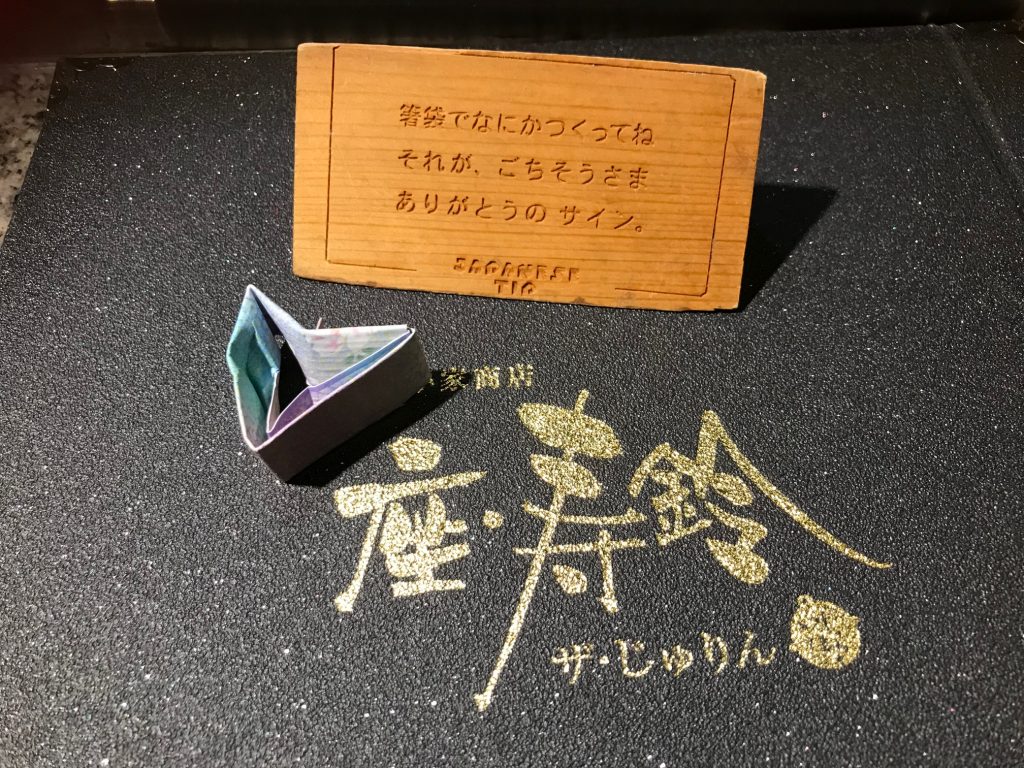 箸袋でなにかつくってね
それが、ごちそうさま
ありがとうの サイン。
JAPANESE
TIP
家商店
座・寿鈴
ザ・じゅりん